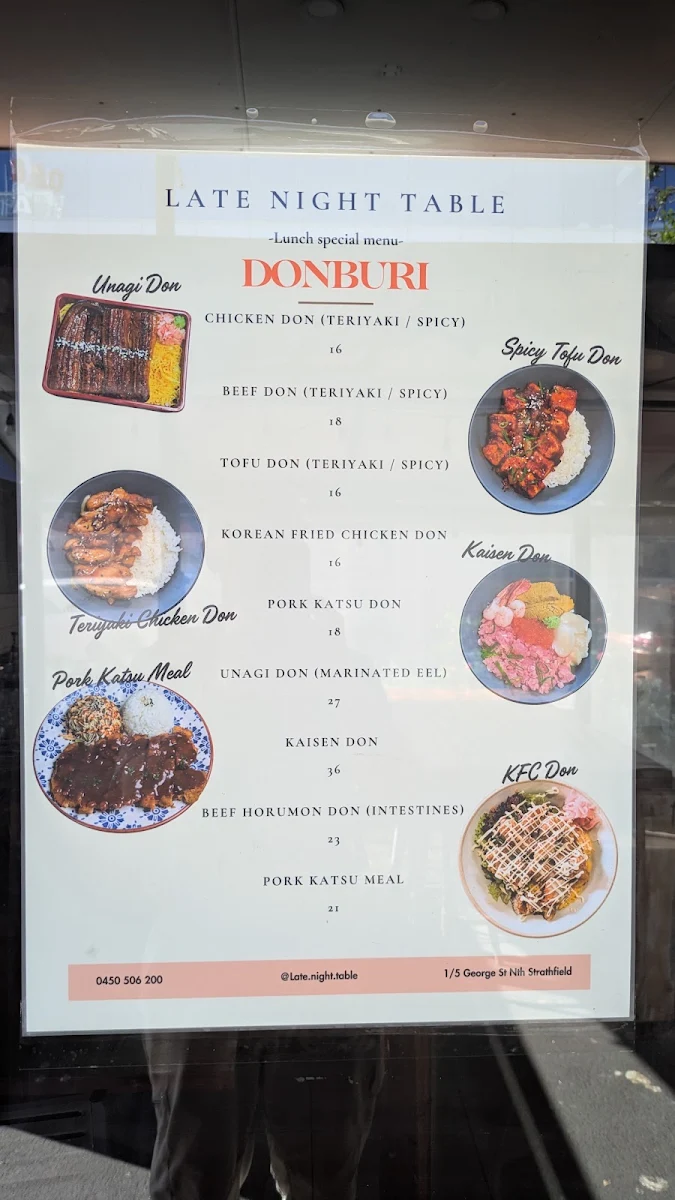 LATE NIGHT TABLE
-Lunch special menu-
DONBURI
Unagi Don
CHICKEN DON (TERIYAKI / SPICY)
16
Spicy Tofu Don
BEEF DON (TERIYAKI / SPICY)
18
TOFU DON (TERIYAKI / SPICY)
16
KOREAN FRIED CHICKEN DON
16
Kaisen Don
PORK KATSU DON
18
Teriyaki Chicken Don
Pork Katsu Meal
UNAGI DON (MARINATED EEL)
27
KAISEN DON
36
KFC Don
BEEF HORUMON DON (INTESTINES)
23
PORK KATSU MEAL
21
0450 506 200
@Late.night.table
1/5 George St Nth Strathfield